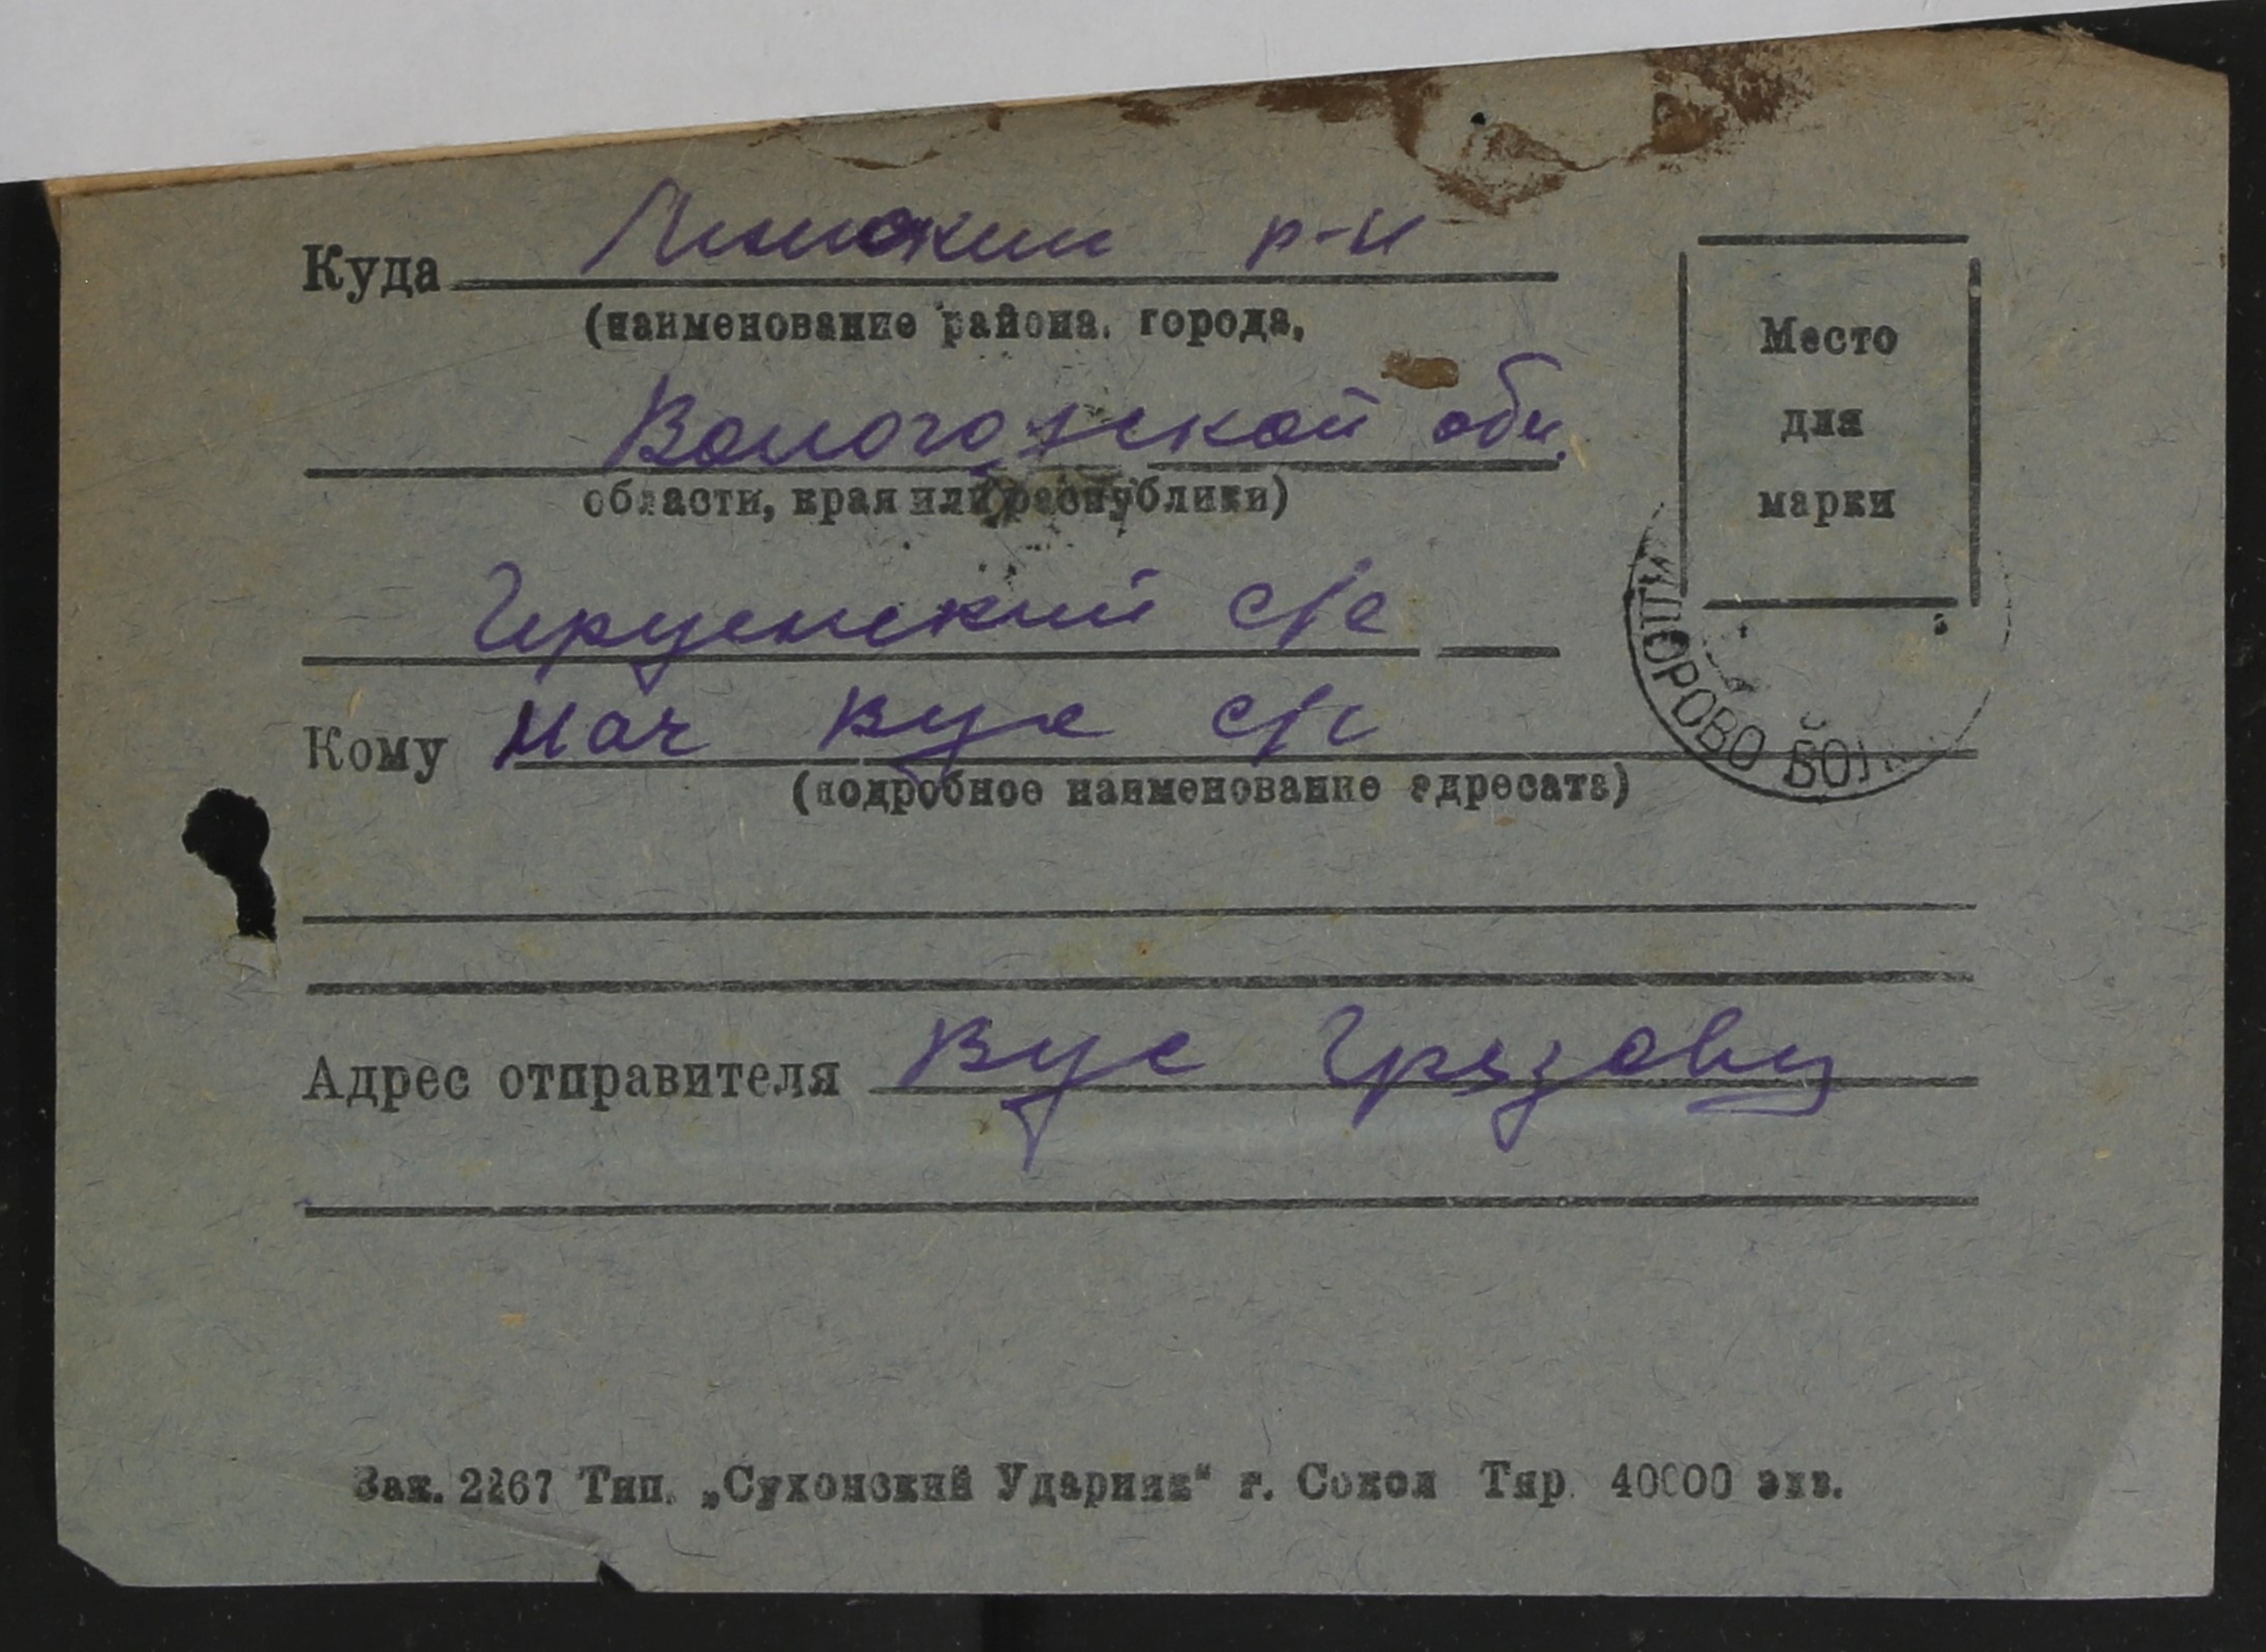 Куда р-н
(наименование района, города,
Вологодской обл.
области, края или республики)
с/с
Кому Нач Вус с/с
(подробное наименование адресата)
Место
для
марки
Адрес отправителя Вус Грязовец
Зак. 2267 Тип. „Сухонский Ударник“ г. Сокол Тир. 40000 экз.